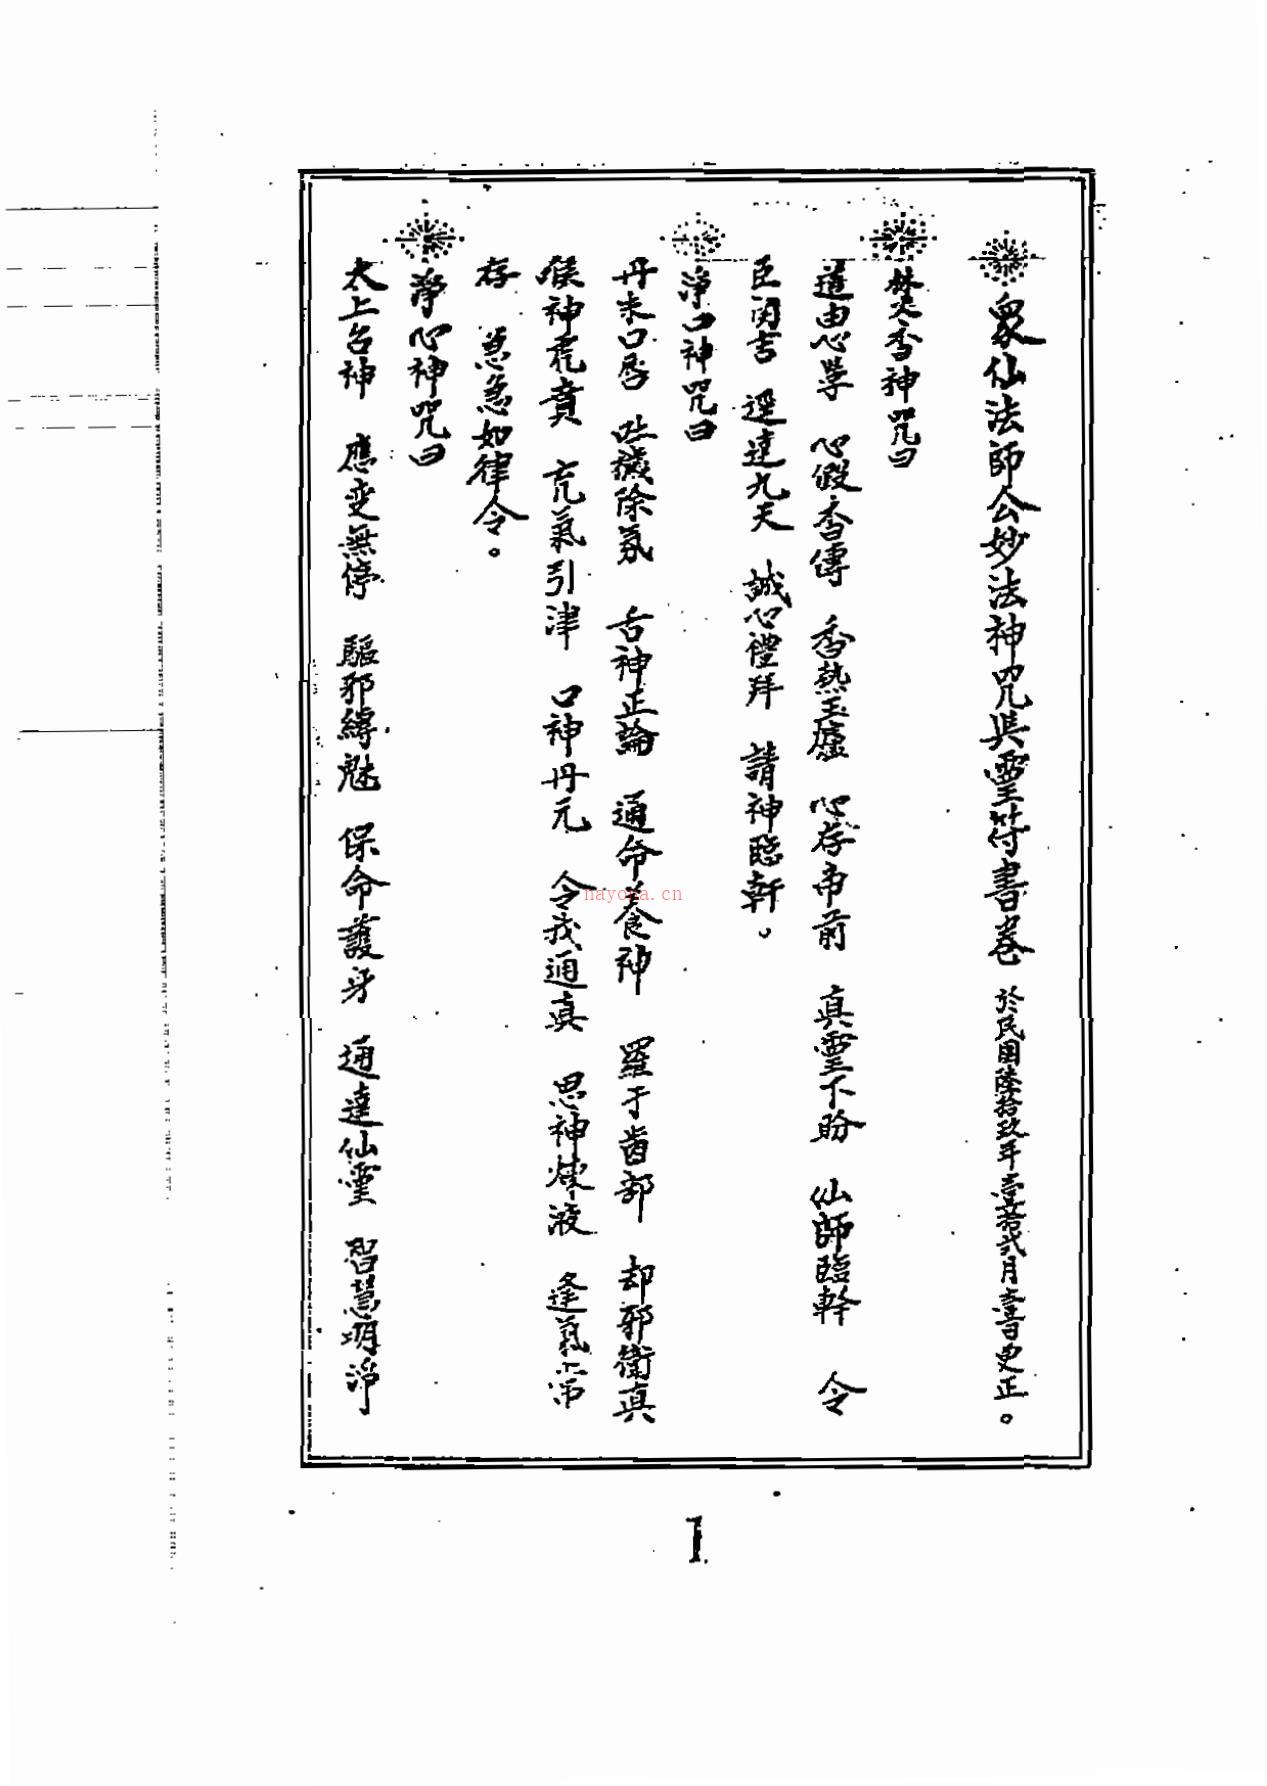 眾仙法師公妙法神咒與靈符書卷 於民国陸拾玖年壹拾弍月壹書更正。
焚香神咒曰
道由心學 心假香傳 香熱玉爐 心存帝前 真靈下盼 仙師臨幹 令
臣関告 逕達九天 誠心禮拜 請神臨軒。
淨口神咒曰
丹朱口唇 吐穢除氛 舌神正論 通命養神 羅于齒部 却邪衛真
侯神虎賁 炁氣引津 口神丹元 令我通真 思神煉液 逢氣常
存 急急如律令。
淨心神咒曰
太上台神 應变無停 驅邪縛魅 保命護身 通達仙靈 智慧明淨
nayona.cn
1